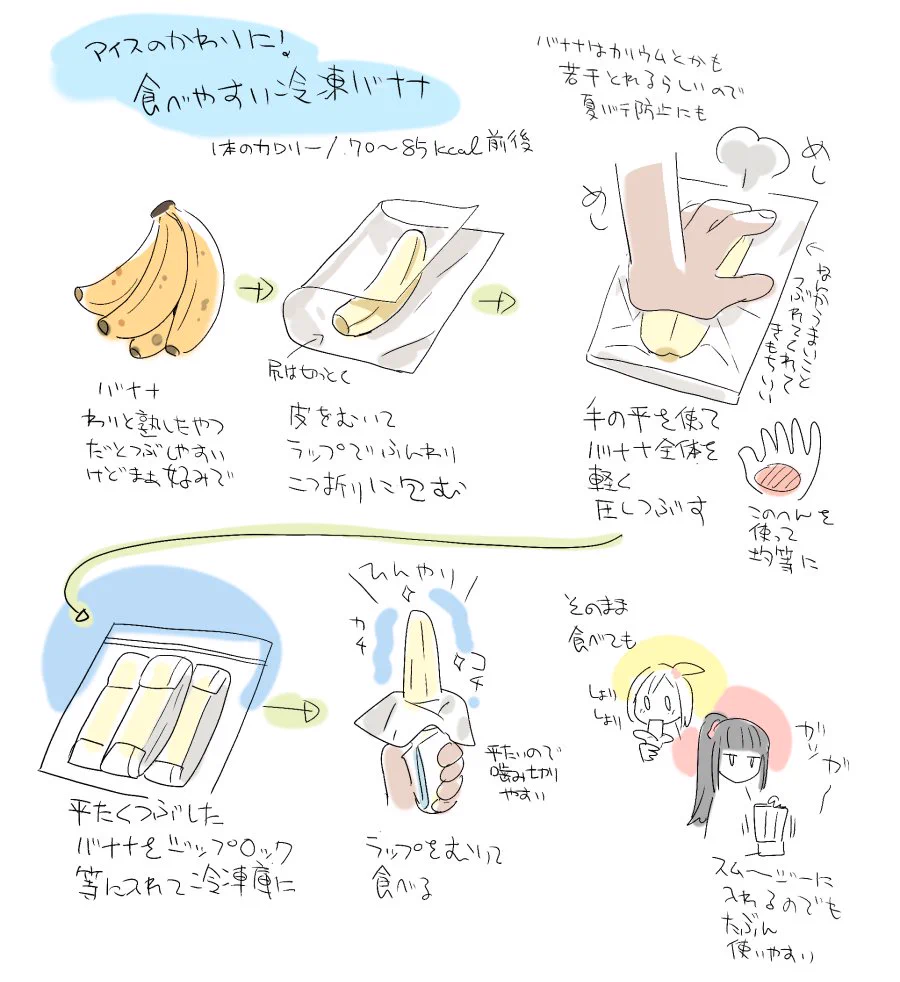 アイスのかわりに!
食べやすい冷凍バナナ
1本のカロリー/.70〜85kcal前後
バナナはカリウムとかも
若干とれるらしいので
夏バテ防止にも
バナナ
わりと熟したやつ
だとつぶしやすい
けどまぁ好みで
尻は切っとく
皮をむいて
ラップでふんわり
二つ折りに包む
めし
めし
←なんかうまいこと
つぶれてくれて
きもちいい
手の平を使って
バナナ全体を
軽く
圧しつぶす
このへんを
使って
均等に
平たくつぶした
バナナをジップロック
等に入れて冷凍庫に
ひんやり
カチ
コチ
平たいので
噛み切り
やすい
ラップをむいて
食べる
そのまま
食べても
しょり
しょり
ガッ
ガ
スムージーに
入れるのでも
たぶん
使いやすい